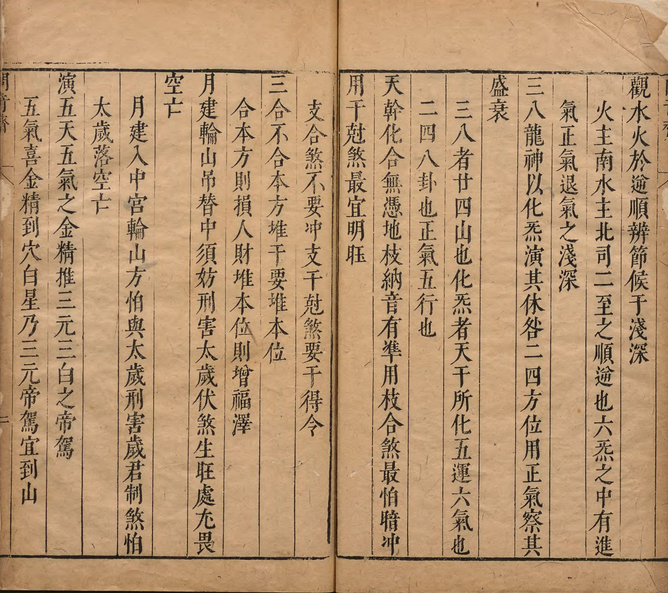 觀水火於逆順辨節候于淺深
火主南水主北司二至之順逆也六炁之中有進
氣正氣退氣之淺深
三八龍神以化炁演其休咎二四方位用正氣察其
盛衰
三八者廿四山也化炁者天干所化五運六氣也
二四八卦也正氣五行也
天幹化合無憑地枝納音有凖用枝合煞最怕暗冲
用干尅煞最宜明旺
支合煞不要冲支干尅煞要干得令
三合不合本方堆干要堆本位
合本方則損人財堆本位則增福澤
月建輪山吊替中須妨刑害太歲伏煞生旺處尢畏
空亡
月建入中宮輪山方怕與太歲刑害歲君制煞怕
太歲落空亡
演五天五氣之金精推三元三白之帝駕
五氣喜金精到穴白星乃三元帝駕宜到山